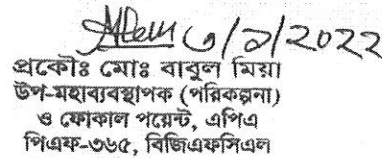 ৩/১/2022
প্রকৌঃ মোঃ বাবুল মিয়া
উপ-মহাব্যবস্থাপক (পরিকল্পনা)
ও ফোকাল পয়েন্ট, এপিএ
পিএফ-৩৬৫, বিজিএফসিএল